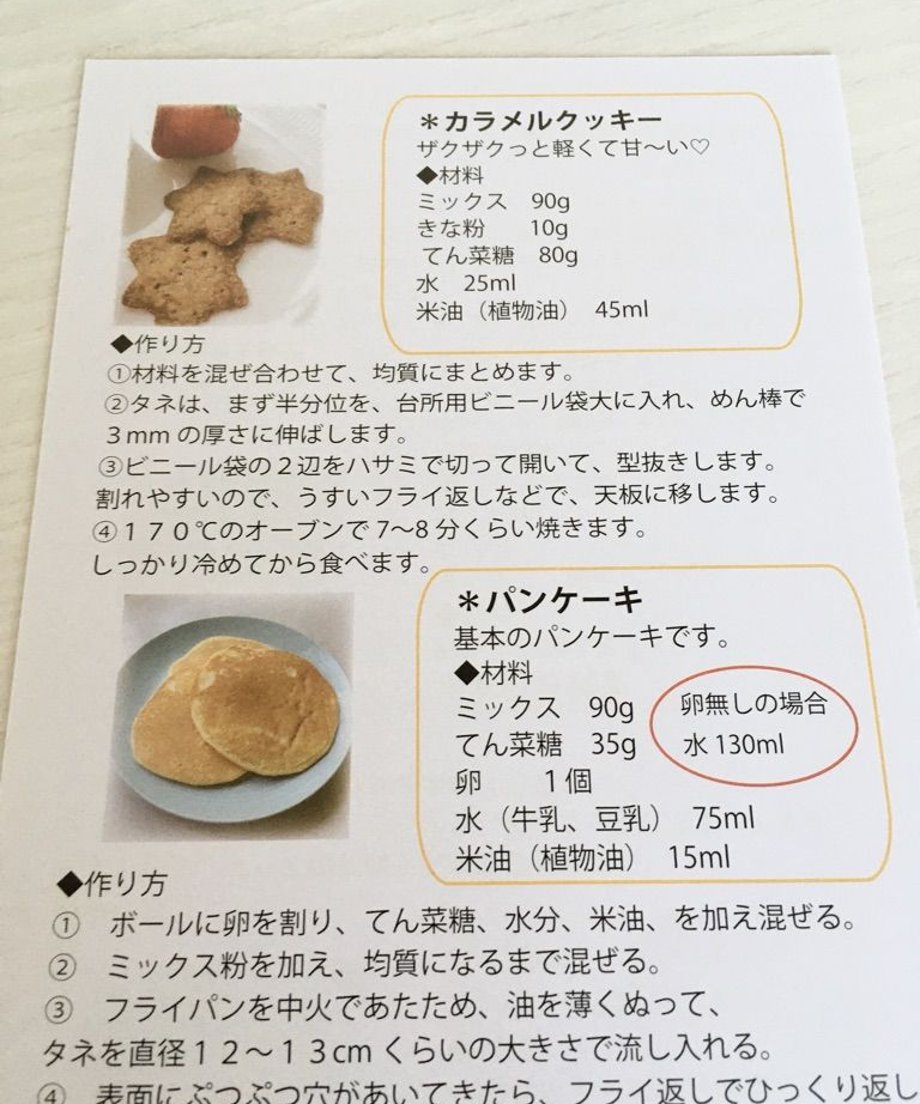 ＊カラメルクッキー
ザクザクっと軽くて甘〜い♡
◆材料
ミックス　90g
きな粉　　10g
てん菜糖　80g
水　25ml
米油（植物油）　45ml
◆作り方
①材料を混ぜ合わせて、均質にまとめます。
②タネは、まず半分位を、台所用ビニール袋大に入れ、めん棒で
３mm の厚さに伸ばします。
③ビニール袋の２辺をハサミで切って開いて、型抜きします。
割れやすいので、うすいフライ返しなどで、天板に移します。
④１７０℃のオーブンで 7〜8 分くらい焼きます。
しっかり冷めてから食べます。
＊パンケーキ
基本のパンケーキです。
◆材料
ミックス　90g
てん菜糖　35g
卵　　１個
水（牛乳、豆乳）　75ml
米油（植物油）　15ml
卵無しの場合
水 130ml
◆作り方
①　ボールに卵を割り、てん菜糖、水分、米油、を加え混ぜる。
②　ミックス粉を加え、均質になるまで混ぜる。
③　フライパンを中火であたため、油を薄くぬって、
タネを直径１２〜１３cm くらいの大きさで流し入れる。
④　表面にぷつぷつ穴があいてきたら、フライ返しでひっくり返し